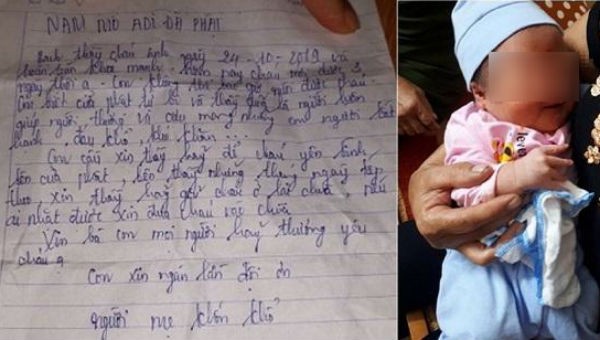 NAM MÔ ADI ĐÀ PHẬT
thầy cháu sinh ngày 24-10-2019 và
hoàn toàn khỏe mạnh. hôm nay cháu mới được 3
ngày thôi ạ. Con không
Con biết cửa phật từ bi và thầy là người luôn
giúp người thường và những con người bất
hạnh, đau khổ, khó khăn...
Con cầu xin thầy hãy để cháu yên bình
bên cửa phật, những tháng ngày tiếp
theo, xin thầy hãy giữ cháu ở lại chùa, nếu
ai nhặt được xin đưa cháu vào chùa
Xin bà con mọi người hãy thương yêu
cháu ạ
Con xin ngàn lần đội ơn
người mẹ khốn khổ
love